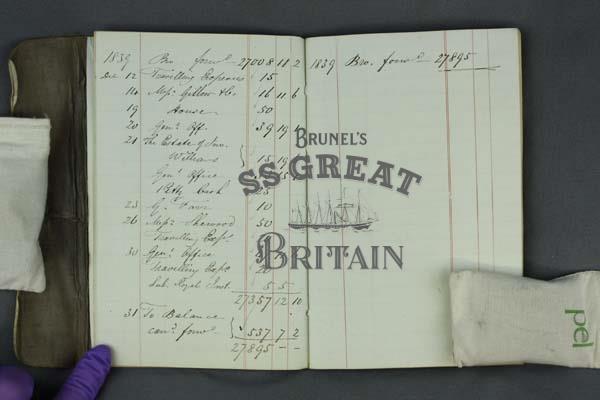 1839 Bro. forwd. 27008 11 2
Dec 12 Travelling Expenses 15
16 Messrs Gillow & Co. 16 11 6
19 House 50
20 Genl. Off. 39 19
21 The Estate of Inv.
Williams 15 19
Genl. Office
Petty Cash 25
23 G. 10
26 Messrs Sherwood 50
Travelling Exps.
30 Genl. Office
Travelling Exps. 20
Sub. Royal Inst. 5 5
27357 12 10
31 To Balance
card. forwd. 537 7 2
27895 — —
1839 Bro. forwd. 27895
BRUNEL'S
SS GREAT
BRITAIN
pel